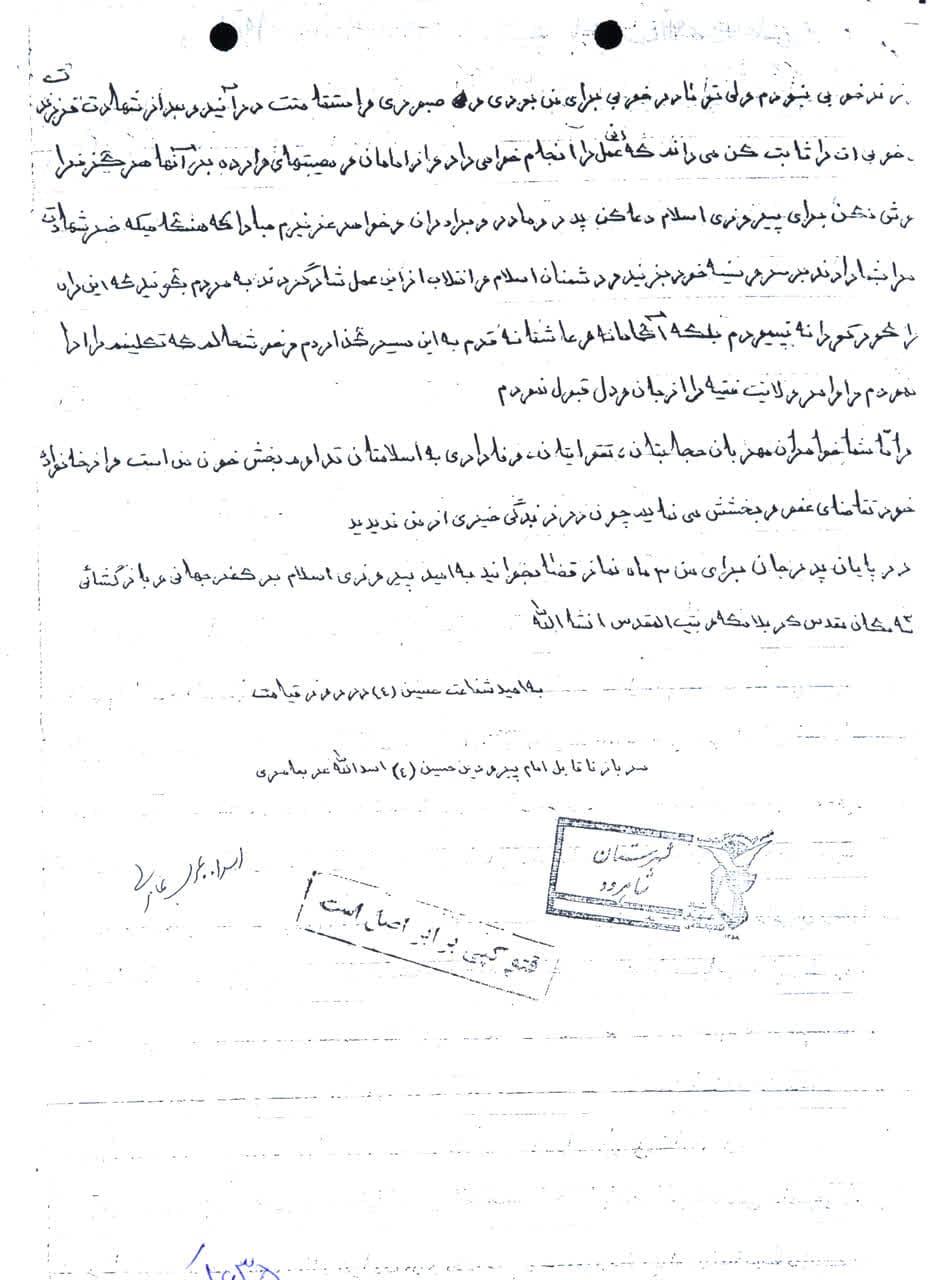 رند خوبی نبودم ولی تو مادر خوبی برای من بودی و صبوری و استقامت درآئید و بعد از شهادت فرزندت
خوبی ات را ثابت کن می دانم که این عمل را انجام خواهی داد و از امامان و مصیبتهای وارده بر آنها هرگز فرا
وش نکن برای پیروزی اسلام دعا کن پدر و مادر و برادران و خواهر عزیزم مبادا که هنگامیکه خبر شهادت
مرا بشما دادند بر سر و سینه خود بزنید و دشمنان اسلام و انقلاب از این عمل شاد گردند به مردم بگوئید که این راه
را کورکورانه نپیمودم بلکه آگاهانه و عاشقانه قدم به این مسیر گذاردم و خوشحالم که تکلیفم را ادا
نمودم و اوامر ولایت فقیه را از جان و دل قبول نمودم
و اما شما خواهران مهربان حجابتان، تقوایتان، وفاداری به اسلامتان تداوم بخش خون من است و از خانواده
خود تقاضای عفو و بخشش می نمایم چون در زندگی خیری از من ندیدید
در پایان پدرجان برای من ۳ ماه نماز قضا بخوانید به امید پیروزی اسلام بر کفر جهانی و بازگشائی
مکان مقدس کربلا مکه و بیت المقدس انشاالله
به امید شفاعت حسین (ع) در روز قیامت
سرباز ناقابل امام پیرو دین حسین (ع) اسدالله عرب عامری
شهرستان
شاهرود
اسدا... عرب عامری
فتو کپی برابر اصل است